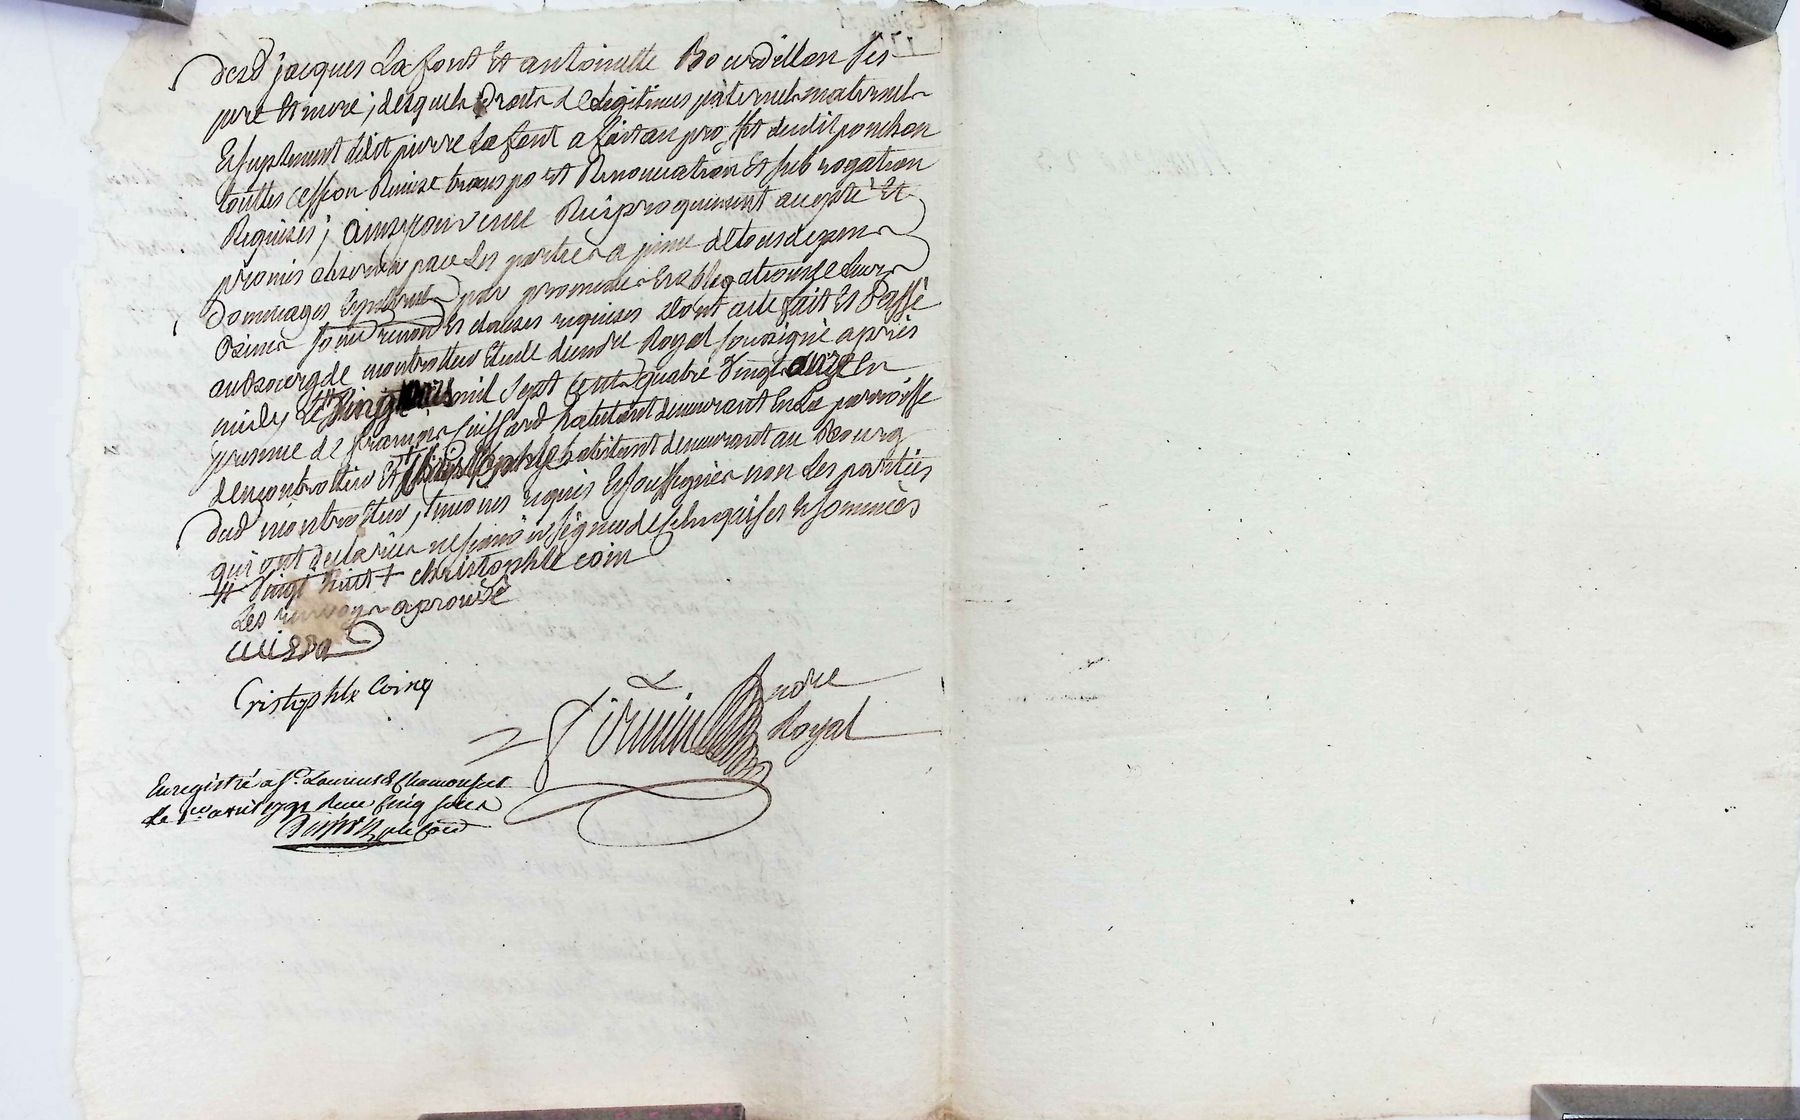 desd jacques Lafont et antoinette Bourdillon ses
pere et mere; desquels droits de legitimes paternels maternels
et suplement ledit pierre Lafont a fait au proffit dudit ponchon
touttes cession Remise transport Renonciation et subrogation
Requises; ainsy convenu Reciproquement accepté et
promis observer par les parties a peine de tous depens
Dommages interets par promesses et obligations de leurs
biens soum renon et clauses requises dont acte fait et Passé
au bourg de montrottier etude du nore Royal soussigné apres
midy le mil sept cents quatre vingt onze en
presence de françois habitant demeurant en la parroisse
de montrottier et habitant demeurant au Bourg
dud montrottier, temoins requis et soussignes non les parties
qui ont declarées ne scavoir signer de ce enquises et sommées
# vingt huit + christophle coin
Les renvoys aprouvé
Cristophle Coing
nore
Royal
Enregistré a St. Laurent de Chamousset
le 1er avril 1791 Reçu cinq sols